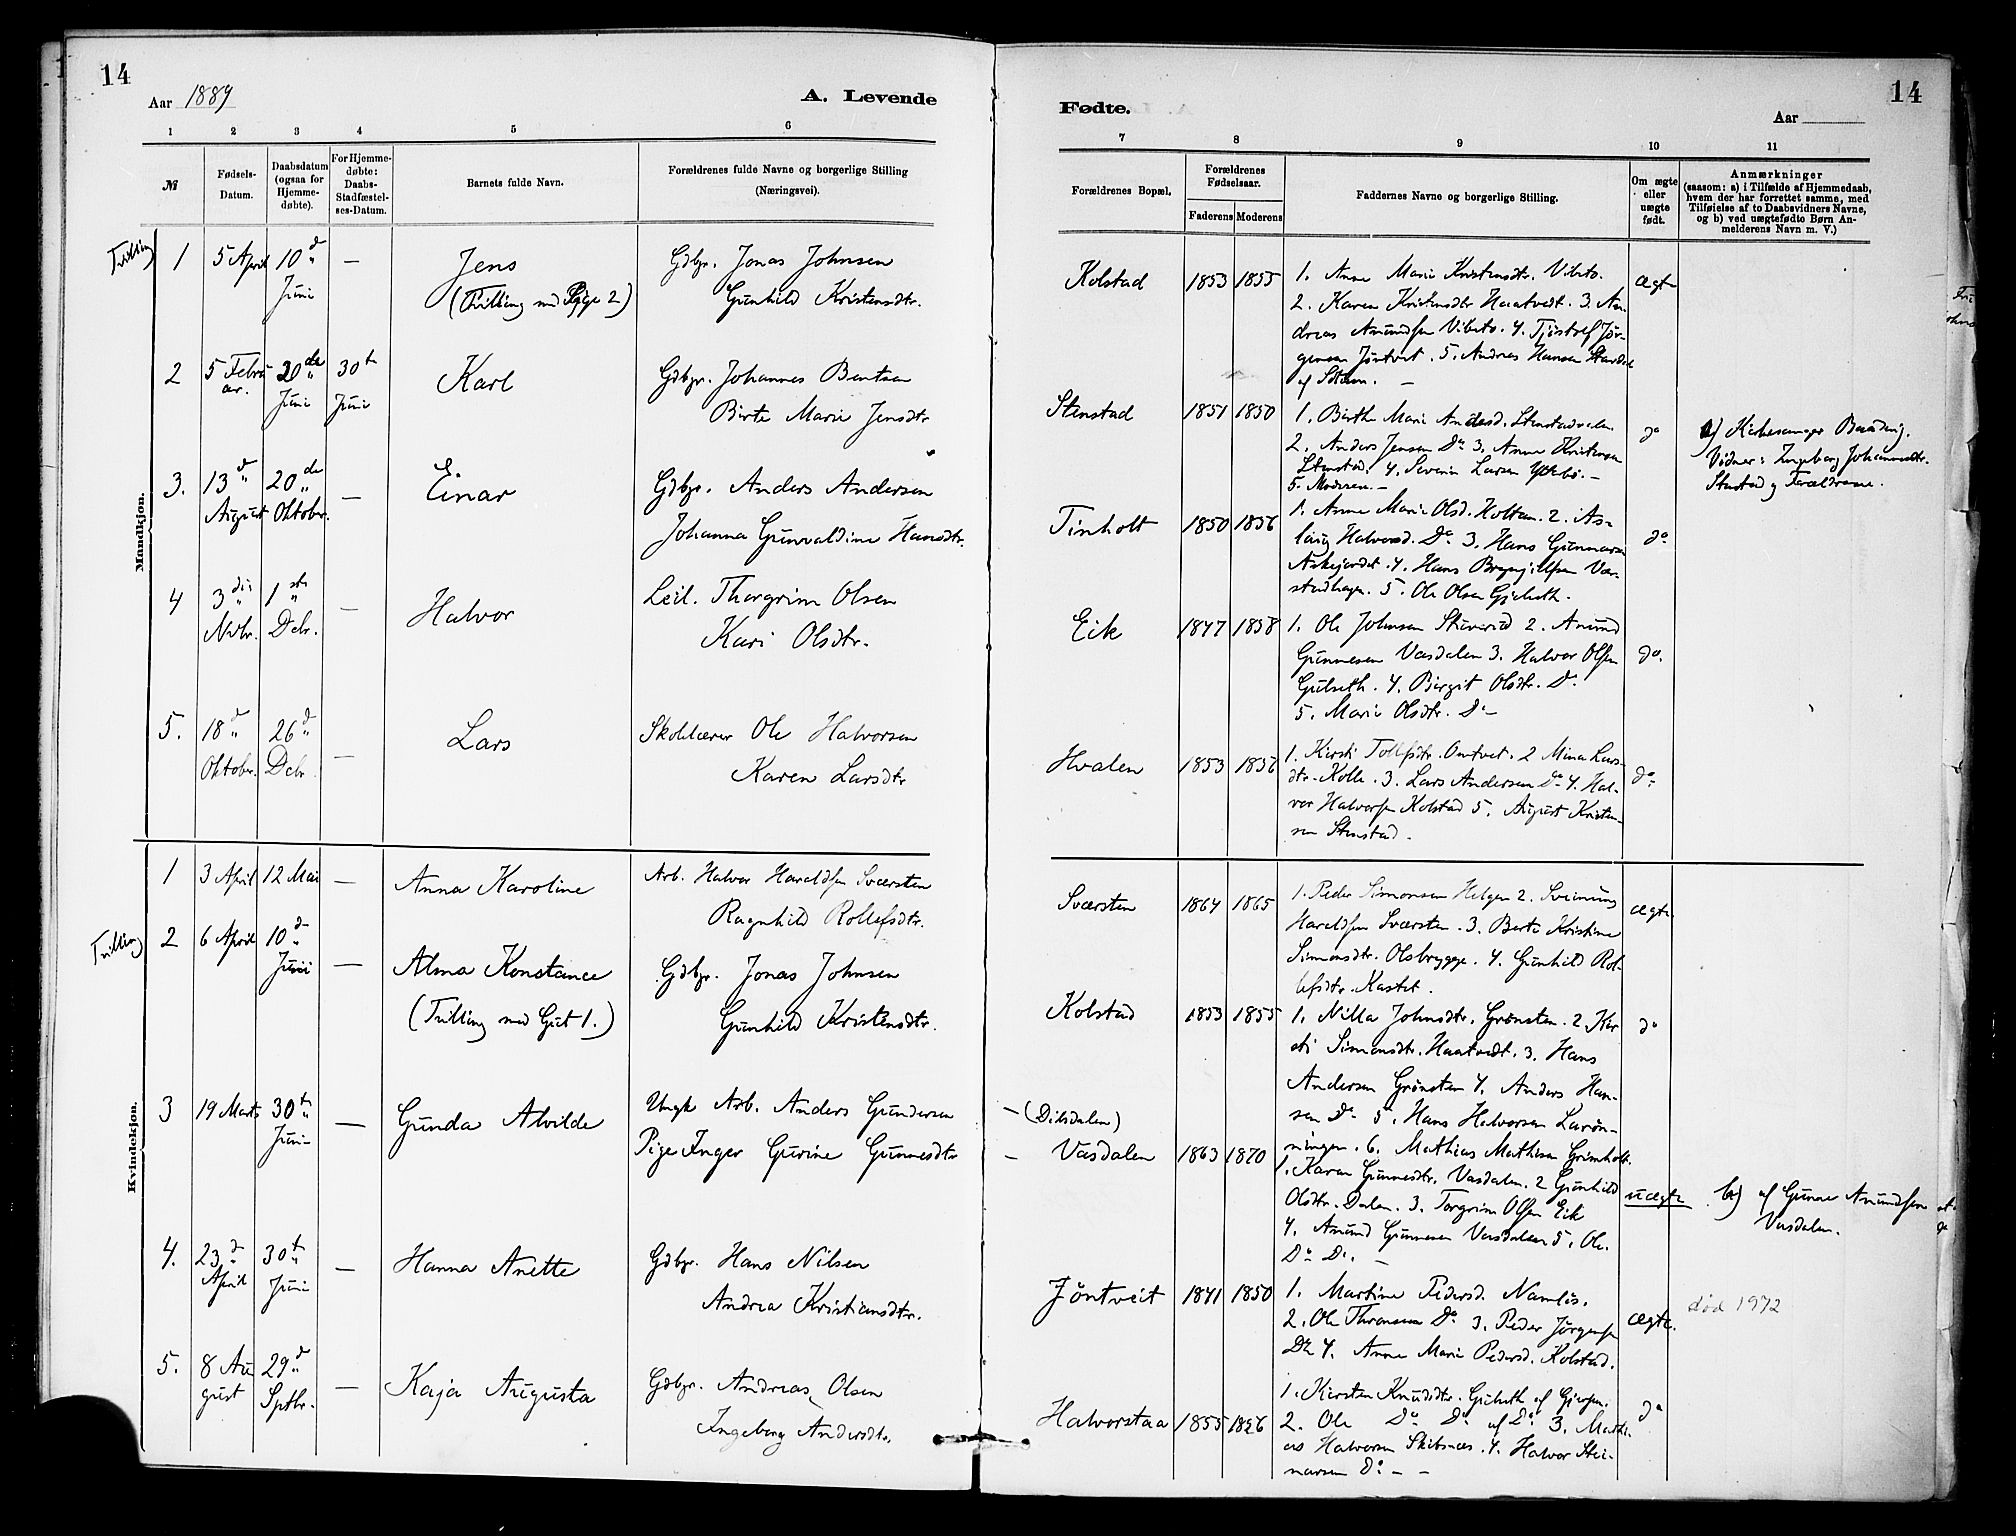 14
Aar 1889
A. Levende
1 2 3 4 5 6
№
Fødsels-
Datum.
Daabsdatum
(ogsaa for
Hjemme-
døbte).
For Hjemme-
døbte:
Daabs-
Stadfæstel-
ses-Datum.
Barnets fulde Navn.
Forældrenes fulde Navne og borgerlige Stilling
(Næringsvei).
Mandkjøn.
Tvilling
1 5 April 10 d Juni — Jens
(Tvilling med Pige 2)
Gdbr. Jonas Johnsen
Gunhild Kristensdtr.
2 5 Febru
ar. 20de Juni 30t Juni Karl
Gdbr. Johannes Bentsen
Birte Marie Jensdtr
3. 13 d August 20de Oktober. — Einar
Gdbr. Anders Andersen
Johanna Gunvaldine Hansdtr.
4 3die Nvbr. 1ste Dcbr. — Halvor
Leil. Thorgrim Olsen
Kari Olsdtr.
5. 18 d Oktober. 26 d Dcbr. — Lars
Skolelærer Ole Halvorsen
Karen Larsdtr
Kvindekjøn.
1 3 April 12 Mai — Anna Karoline
Arb. Halvor Haraldsen Sværsten
Ragnhild Rollefsdtr.
Tvilling
2 6 April 10 d Juni — Alma Konstance
(Tvilling med Gut 1.)
Gdbr. Jonas Johnsen
Gunhild Kristensdtr.
3 19 Marts 30t Juni — Gunda Alvilde
Ungk Arb. Anders Gundersen
Pige Inger Gurine Gunnesdtr
4. 23 d April 30t Juni — Hanna Anette
Gdbr. Hans Nilsen
Andrea Kristiansdtr.
5. 8 Au
gust 29 d Sptbr. — Kaja Augusta
Gdbr. Andreas Olsen
Ingeborg Andersdtr.
14
Fødte.
Aar
7 8 9 10 11
Forældrenes Bopæl.
Forældrenes
Fødselsaar.
Faderens Moderens
Faddernes Navne og borgerlige Stilling.
Om ægte
eller
uægte
født.
Anmærkninger
(saasom: a) i Tilfælde af Hjemmedaab,
hvem der har forrettet samme, med
Tilføielse af to Daabsvidners Navne,
og b) ved uægtefødte Børn An-
melderens Navn m. V.)
Kolstad 1853 1855
1. Anne Marie Kristensdtr. Vibeto.
2. Karen Kristensdtr Haatvedt. 3. An-
dreas Amundsen Vibeto. 4. Tjostolf Jør-
gensen Jøntveit. 5. Andreas Hansen
ægte
Stenstad 1851 1850
1. Birthe Marie Andersd. Stenstadvalen
2. Anders Jensen Do 3. Anne Kristensen
Stenstad. 4. Severin Larsen Ytterbø. —
5. Moderen. —
do
a) Kirkesanger
Vidner: Ingeborg Johannesdtr.
Stenstad og Forældrene.
Tinholt 1850 1856
1. Anne Marie Olsd. Holtan. 2. As-
laug Halvorsd. Do 3. Hans Gunnarsen
Askejordet. 4. Hans Brynjulfsen Vær-
stadhagen. 5. Ole Olsen Gjelseth.
do
Eik 1847 1858
1. Ole Johnsen 2. Amund
Gunnesen Vasdalen 3. Halvor Olsen
Gulseth. 4. Birgit Olsdtr. Do
5. Marie Olsdtr. Do
do.
Hvalen 1853 1856
1. Kirsti Tollefsdtr. Omtvet. 2 Mina Lars-
dtr. Kolle. 3. Lars Andersen Do 4. Hal-
vor Halvorsen Kolstad 5. August Kristen-
sen Stenstad.
do
Sværsten 1864 1865
1. Peder Simonsen Helgen 2. Sveinung
Haraldsen Sværsten. 3. Berte Kristine
Simonsdtr. Olsbrygge. 4. Gunhild Rol-
lefsdtr. Kastet.
ægte
Kolstad 1853 1855
1. Nilla Johnsdtr. Grønsten. 2 Kir
sti Simonsdtr. Haatvedt. 3. Hans
Andersen Grønsten 4. Anders Han-
sen Do 5. Hans Halvorsen Larøn-
ningen. 6. Mathias Mathisen Grimholt.
do
— (Dilsdalen)
— Vasdalen 1863 1870
1. Karen Gunnesdtr. Vasdalen. 2 Gunhild
Olsdtr. Dalen. 3. Torgrim Olsen Eik
4. Amund Gunnesen Vasdalen 5. Ole
Do Do. —
uægte
b) af Gunne Amundsen
Vasdalen.
Jöntveit 1841 1850
1. Martine Pedersd. Namløs.
2. Ole Thronsen Do 3. Peder Jørgensen
Do 4. Anne Marie Pedersd. Kolstad.
ægte.
død 1972
Halvorstaa 1855 1856
1. Kirsten Knudsdtr. Gulseth af Gjerpen.
2. Ole Do Do af Do 3. Mathi-
as Halvorsen Skibsnæs. 4. Halvor Stei-
narsen Do — —
do